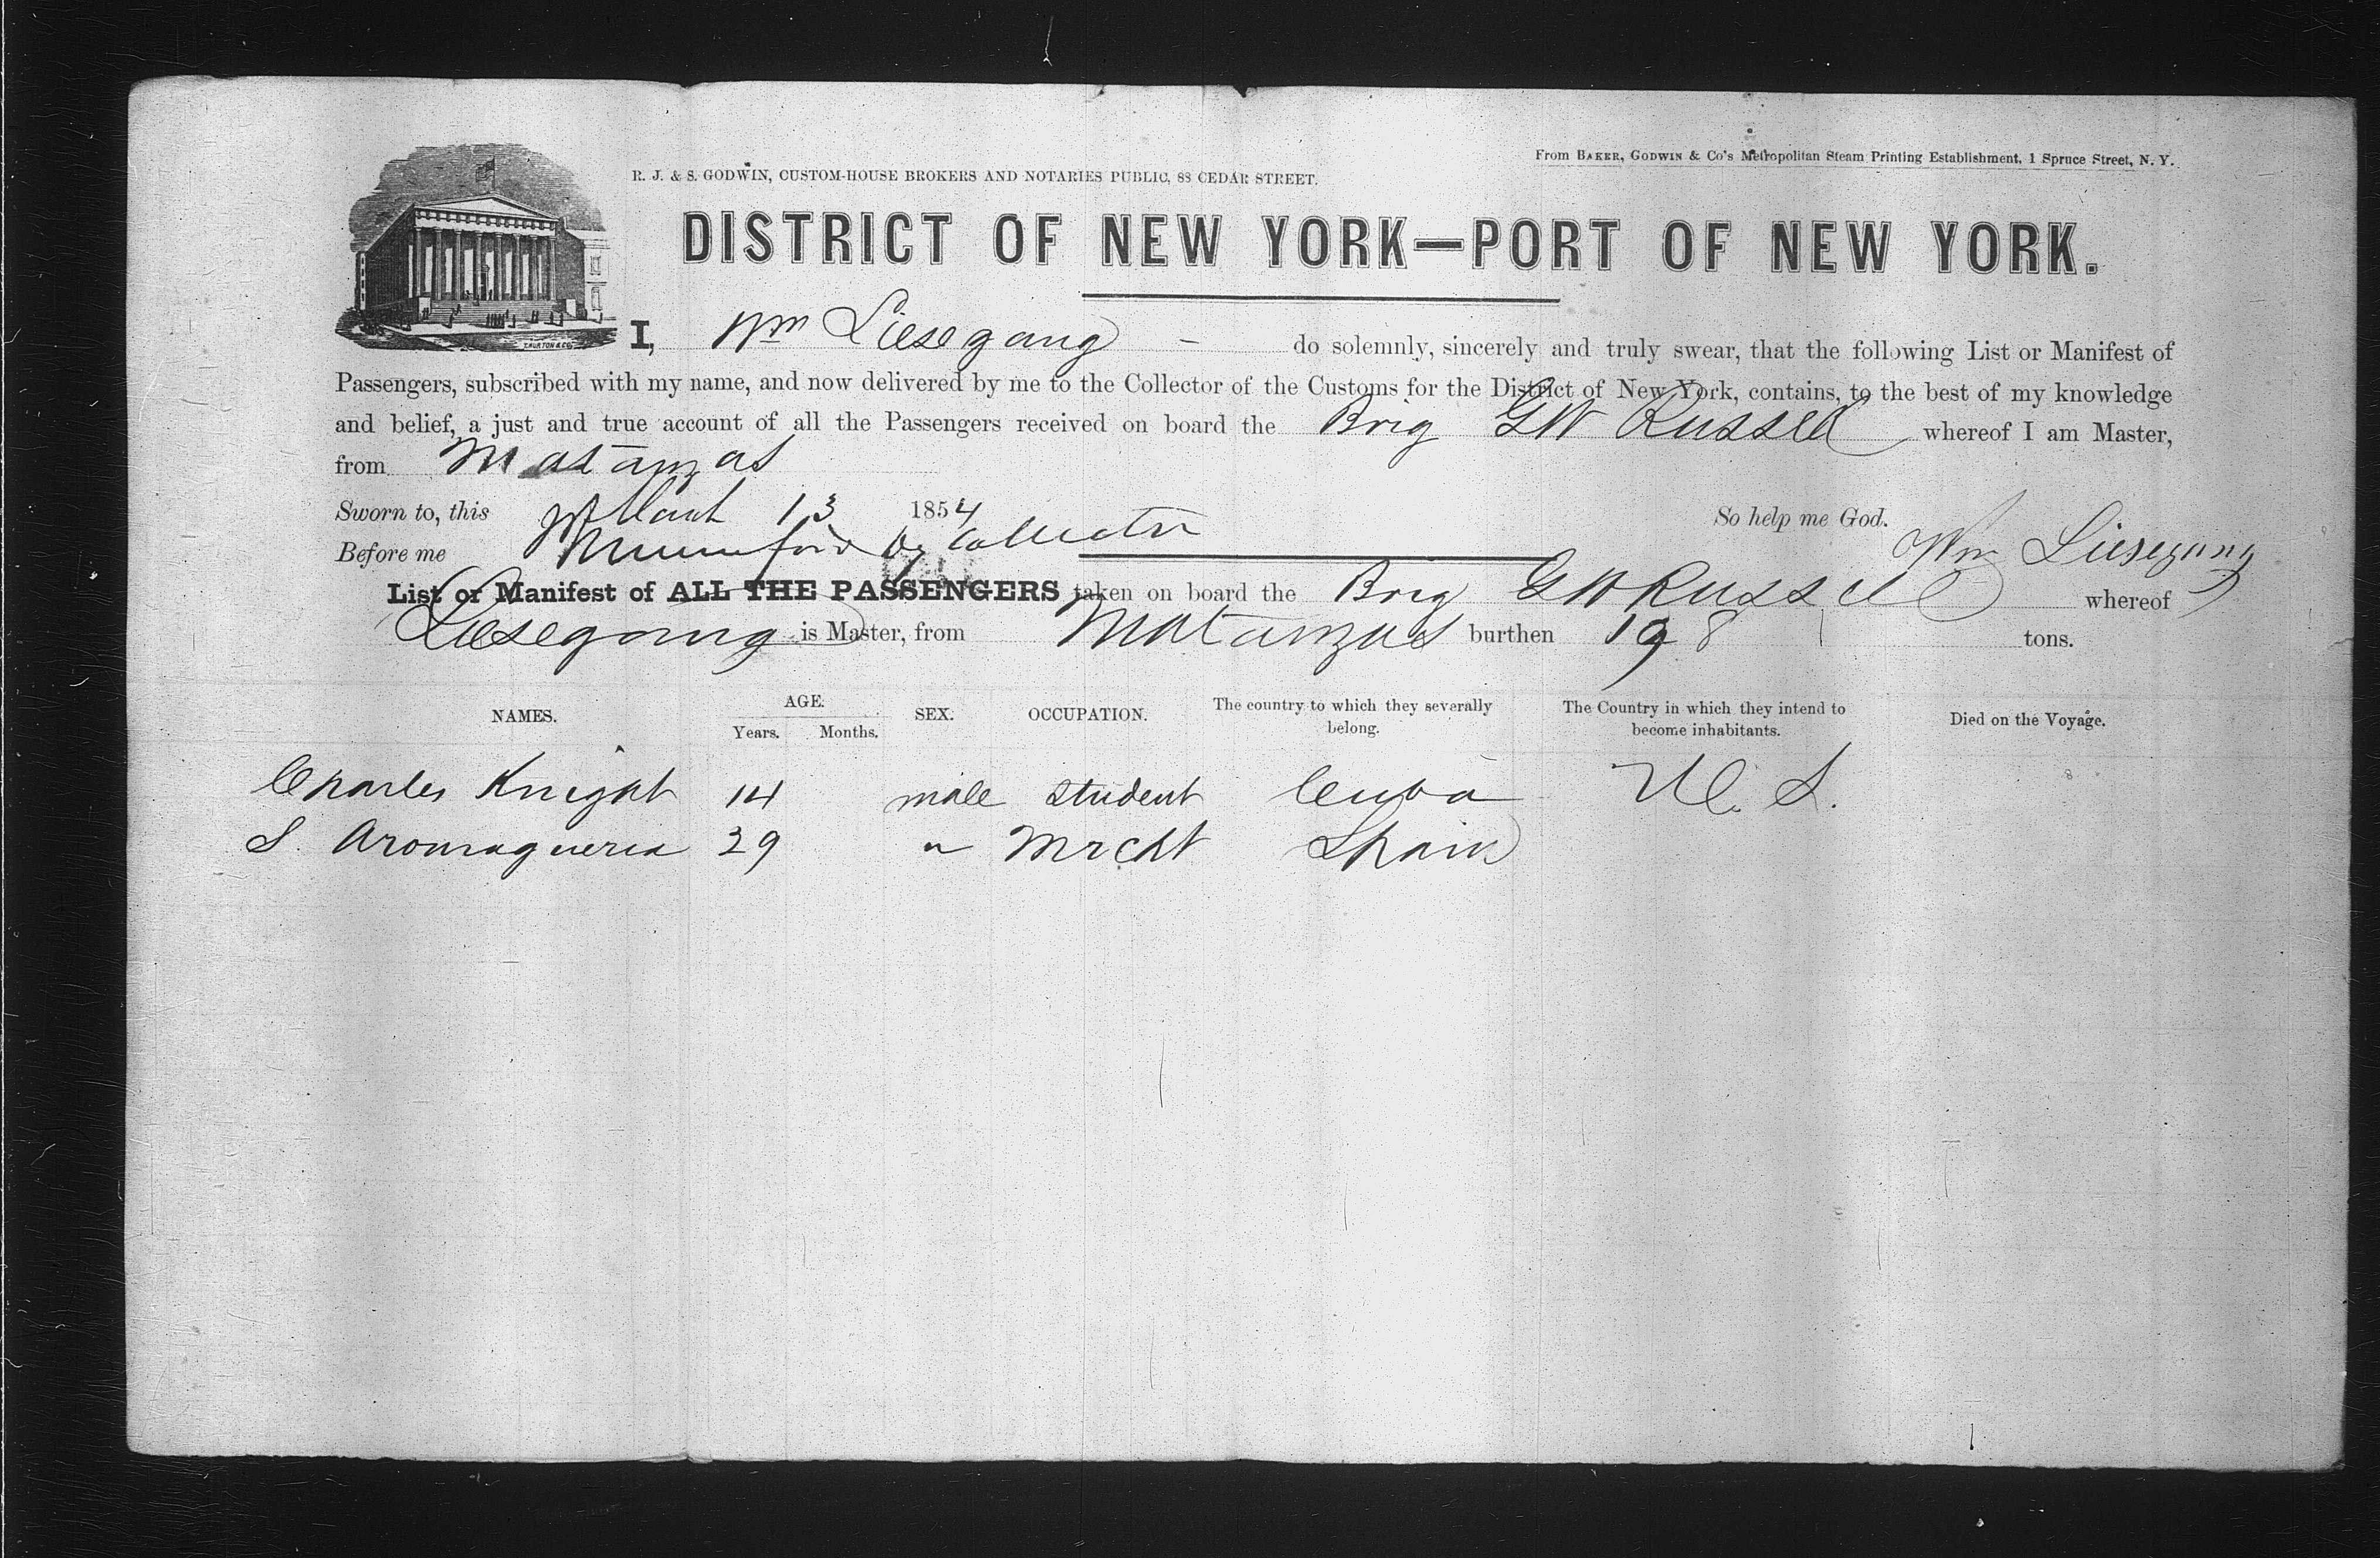 From BAKER, GODWIN & Co's Metropolitan Steam Printing Establishment, 1 Spruce Street, N. Y.
R. J. & S. GODWIN, CUSTOM-HOUSE BROKERS AND NOTARIES PUBLIC, 88 CEDAR STREET.
DISTRICT OF NEW YORK—PORT OF NEW YORK.
I, Wm Liesegang - do solemnly, sincerely and truly swear, that the following List or Manifest of
Passengers, subscribed with my name, and now delivered by me to the Collector of the Customs for the District of New York, contains, to the best of my knowledge
and belief, a just and true account of all the Passengers received on board the Brig GW Russell whereof I am Master,
from Matanzas
Sworn to, this March 13 1854 So help me God.
Before me Mumford Dy Collector Wm Liesegang
List or Manifest of ALL THE PASSENGERS taken on board the Brig GW Russell whereof
Liesegang is Master, from Matanzas burthen 198 tons.
NAMES. AGE. Years. Months. SEX. OCCUPATION. The country to which they severally belong. The Country in which they intend to become inhabitants. Died on the Voyage.
Charles Knight 14 male student Cuba U. S.
S. 39 " Mrcht Spain